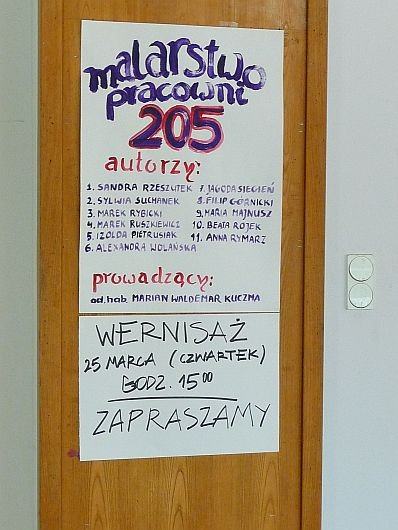 malarstwo
pracowni
205
autorzy:
1. SANDRA RZESZUTEK
2. SYLWIA SUCHANEK
3. MAREK RYBICKI
4. MAREK RUSZKIEWICZ
5. IZOLDA PIETRUSIAK
6. ALEXANDRA WOLAŃSKA
7. JAGODA SIEGIEŃ
8. FILIP GÓRNICKI
9. MARIA MAJNUSZ
10. BEATA ROJEK
11. ANNA RYMARZ
prowadzący:
ad. hab. MARIAN WALDEMAR KUCZMA
WERNISAŻ
25 MARCA (CZWARTEK)
GODZ. 15 00
ZAPRASZAMY